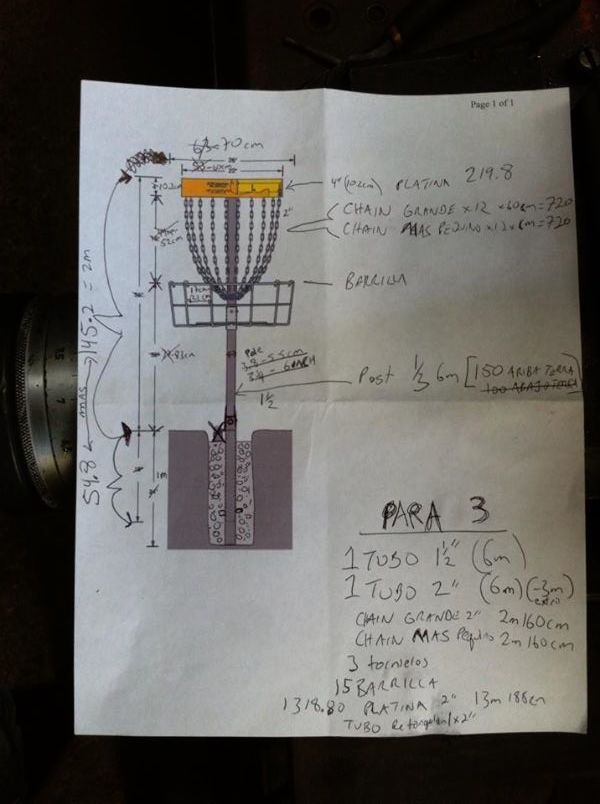 Page 1 of 1
70cm
4" (102cm) PLATINA 219.8
10.2cm
CHAIN GRANDE x12 x 60cm=720
2"
CHAIN MAS PEQUINO x12 x 6cm=720
52cm
BARRILLA
54.8 ← MAS → 145.2 = 2m
Pole
Post 1/3 6m [150 ARIBA TERRA
1 1/2
1m
PARA 3
1 TUBO 1 1/2" (6m)
1 TUBO 2" (6m) (-3m
extro)
CHAIN GRANDE 2" 2m 160cm
CHAIN MAS Pequino 2m 160cm
3 tornelos
15 BARRILLA
1318.80 PLATINA 2" 13m 188cm
TUBO Retongular 1x2"